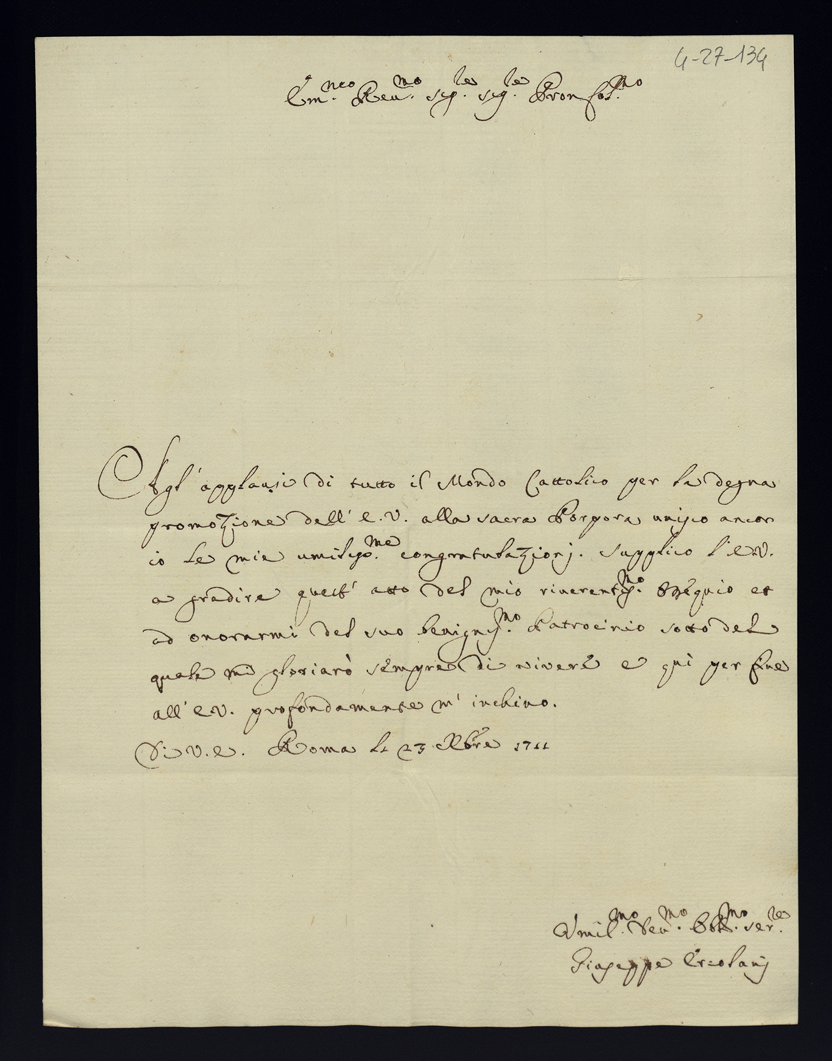 4-27-134
Em.nco Reu.mo sig.re sig.re Pron Col.mo
Agl' applausi di tutto il Mondo Cattolico per la degna
promozione dell' E.V. alla sacra Porpora unisco ancor
io le mie umiliss.me congratulazioni. Supplico l'E.V.
a gradire quest' atto del mio riuerentiss.mo osséquio et
ad onorarmi del suo benigniss.mo Patrocinio sotto del
quale mi gloriarò sempre di uiuere e quì per fine
all' E.V. profondamente m' inchino.
Di V.E. Roma li 23 Xbre 1711
Vmil.mo Deu.mo Obb.mo ser.re
Giuseppe Ercolanj